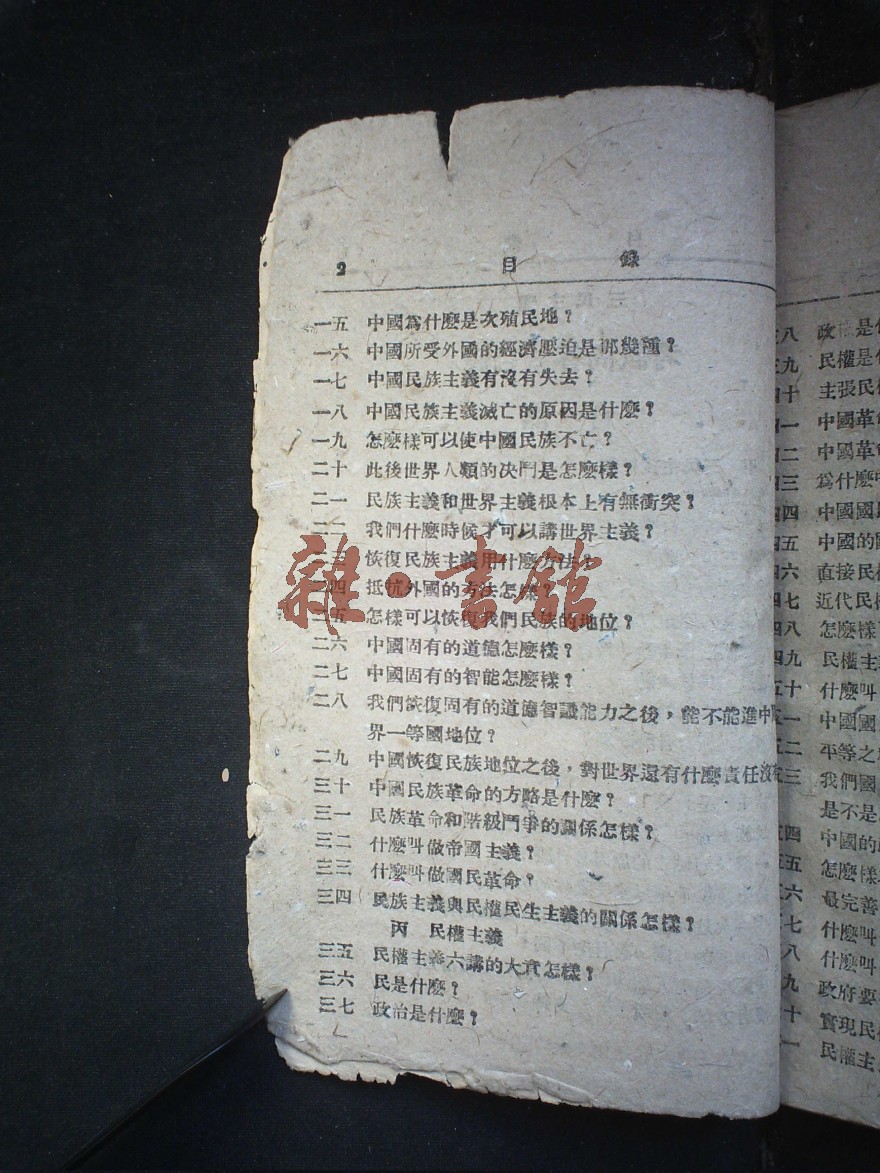 2 目錄
一五 中國爲什麽是次殖民地？
一六 中國所受外國的經濟壓迫是那幾種？
一七 中國民族主義有沒有失去？
一八 中國民族主義滅亡的原因是什麽？
一九 怎麽樣可以使中國民族不亡？
二十 此後世界人類的决鬥是怎麽樣？
二一 民族主義和世界主義根本上有無衝突？
二二 我們什麽時候才可以講世界主義？
二三 恢復民族主義用什麽方法？
二四 抵抗外國的方法怎樣？
二五 怎樣可以恢復我們民族的地位？
二六 中國固有的道德怎麽樣？
二七 中國固有的智能怎麽樣？
二八 我們恢復固有的道德智識能力之後，能不能進中
界一等國地位？
二九 中國恢復民族地位之後，對世界還有什麽責任沒
三十 中國民族革命的方略是什麽？
三一 民族革命和階級鬥爭的關係怎樣？
三二 什麽叫做帝國主義？
三三 什麽叫做國民革命？
三四 民族主義與民權民生主義的關係怎樣？
丙 民權主義
三五 民權主義六講的大意怎樣？
三六 民是什麽？
三七 政治是什麽？
八 政權是
九 民權是
十 主張民
一 中國革
二 中國革
三 爲什麽
四 中國國
四五 中國的
四六 直接民
四七 近代民
四八 怎麽樣
四九 民權主
五十 什麽叫
一 中國國
二 平等之
三 我們國
是不是
四 中國的
五 怎麽樣
六 最完善
七 什麽叫
八 什麽叫
九 政府要
十 實現民
一 民權主
雜·書館